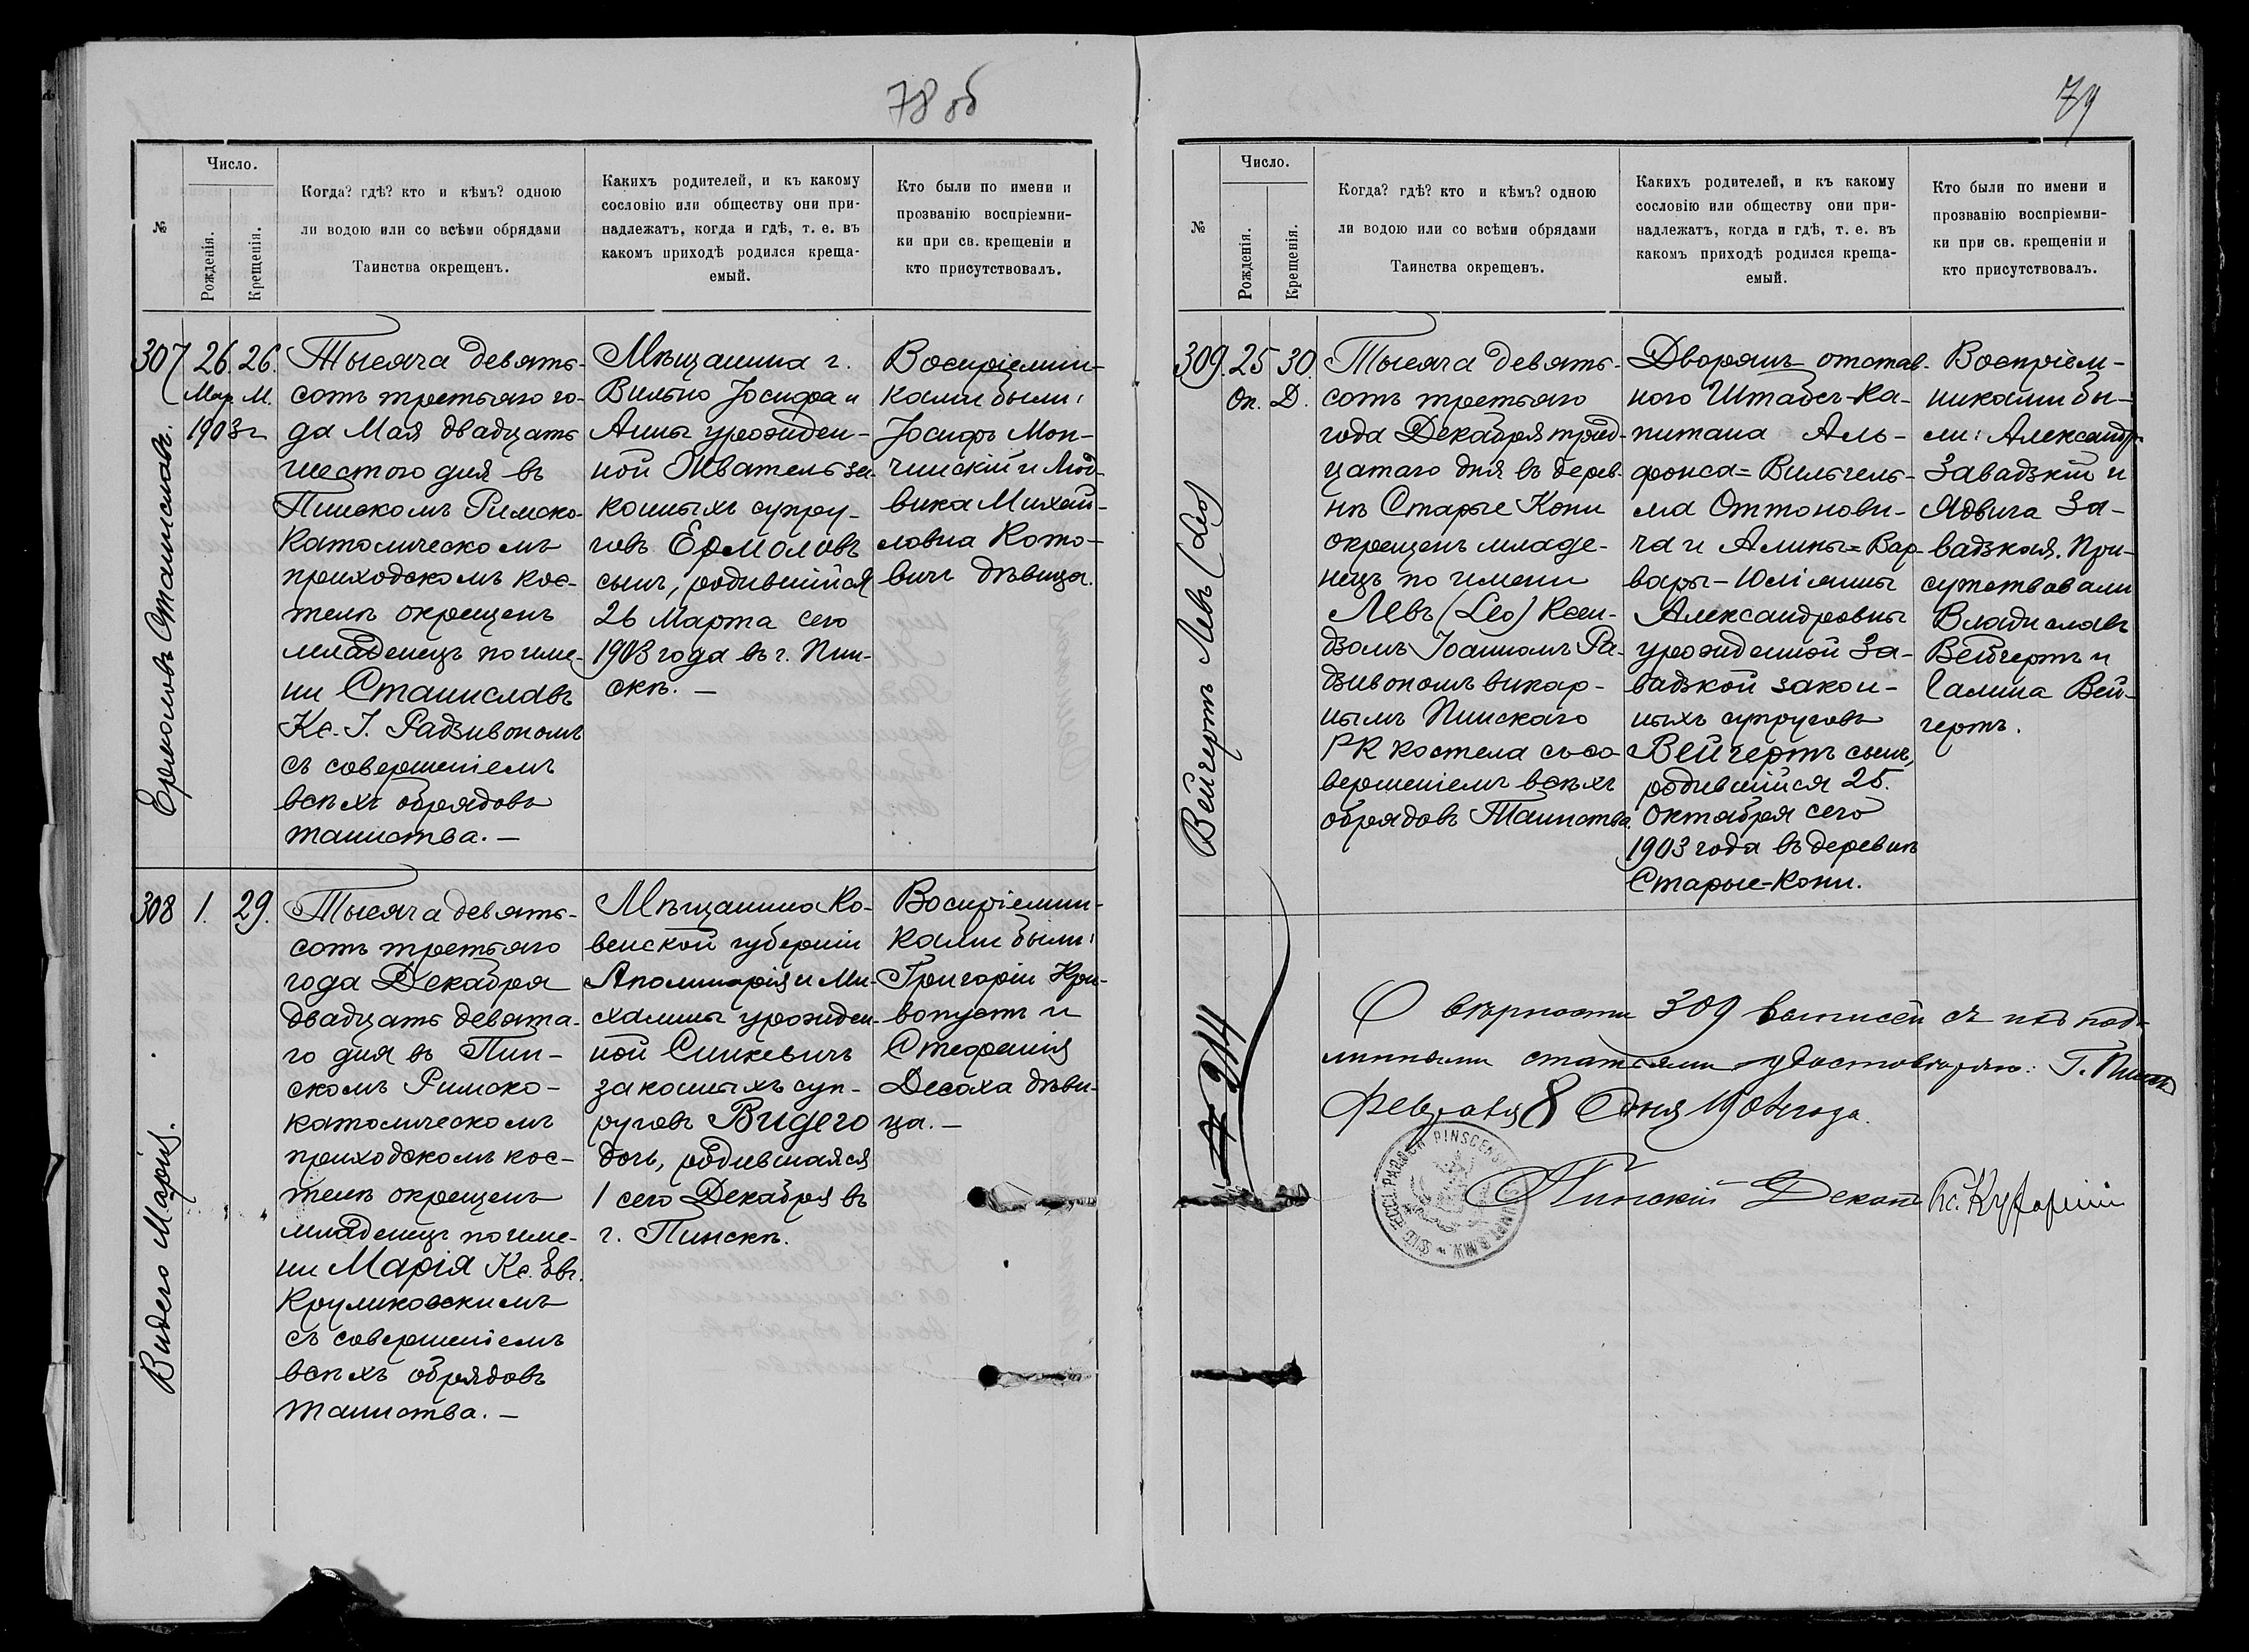 78 об
№
Число.
Рожденія.
Крещенія.
Когда? гдѣ? кто и кѣмъ? одною
ли водою или со всѣми обрядами
Таинства окрещенъ.
Какихъ родителей, и къ какому
сословію или обществу они при-
надлежатъ, когда и гдѣ, т. е. въ
какомъ приходѣ родился креща-
емый.
Кто были по имени и
прозванію воспріемни-
ки при св. крещеніи и
кто присутствовалъ.
307
Ермоловъ Станиславъ.
26. 26.
Мар. М.
1903 г
Тысяча девять-
сотъ третьяго го-
да Мая двадцать
шестого дня въ
Пинскомъ Римско-
католическомъ
приходскомъ кос-
телѣ окрещенъ
младенецъ по име-
ни Станиславъ
Кс. І. Радзивономъ
съ совершеніемъ
всѣхъ обрядовъ
таинства. —
Мѣщанина г.
Вильно Іосифа и
Анны урожден-
ной Живатель за-
конныхъ супру-
говъ Ермоловъ
сынъ, родившійся
26 Марта сего
1903 года въ г. Пин-
скѣ. —
Воспріемни-
ками были:
Іосифъ Мон-
чинскій и Люд-
вика Михай-
ловна Кото-
вичъ дѣвица.
308
Видего Марія.
1. 29.
Тысяча девять-
сотъ третьяго
года Декабря
двадцать девята-
го дня въ Пин-
скомъ Римско-
католическомъ
приходскомъ кос-
телѣ окрещенъ
младенецъ по име-
ни Марія Кс. Евг.
Круликовскимъ
съ совершеніемъ
всѣхъ обрядовъ
таинства. —
Мѣщанина Ко-
венской губерніи
Аполинарія и Ми-
халины урожден-
ной Синкевичъ
законныхъ суп-
руговъ Видего
дочь, родившаяся
1 сего Декабря въ
г. Пинскѣ.
Воспріемни-
ками были:
Григорій Кри-
вопустъ и
Стефанія
Десоха дѣви-
ца. —
79
№
Число.
Рожденія.
Крещенія.
Когда? гдѣ? кто и кѣмъ? одною
ли водою или со всѣми обрядами
Таинства окрещенъ.
Какихъ родителей, и къ какому
сословію или обществу они при-
надлежатъ, когда и гдѣ, т. е. въ
какомъ приходѣ родился креща-
емый.
Кто были по имени и
прозванію воспріемни-
ки при св. крещеніи и
кто присутствовалъ.
309.
Вейгертъ Левъ (Leo)
25 30.
Ок. Д.
Тысяча девять-
сотъ третьяго
года Декабря трид-
цатаго дня въ дерев-
нѣ Старые Кони
окрещенъ младе-
нецъ по имени
Левъ (Leo) Ксен-
дзомъ Іоанномъ Ра-
дзивономъ викар-
нымъ Пинскаго
РК костела съ со-
вершеніемъ всѣхъ
обрядовъ Таинства.
Дворянъ отстав-
ного Штабсъ-ка-
питана Аль-
фонса=Вильгель-
ма Оттонови-
ча и Алины=Вар-
вары-Юліанны
Александровны
урожденной За-
вадзкой закон-
ныхъ супруговъ
Вейгертъ сынъ,
родившійся 25.
Октября сего
1903 года въ деревнѣ
Старые-Кони.
Воспріем-
никами бы-
ли: Александръ
Завадзкій и
Ядвига За-
вадзкая. При-
сутствовали
Владиславъ
Вейгертъ и
Галина Вей-
гертъ.
О вѣрности 309 выписей съ под-
линными статьями удостовѣряю. Г. Пинскъ
Февраля 8 дня 1904 года.
Пинскій Деканъ Кс.